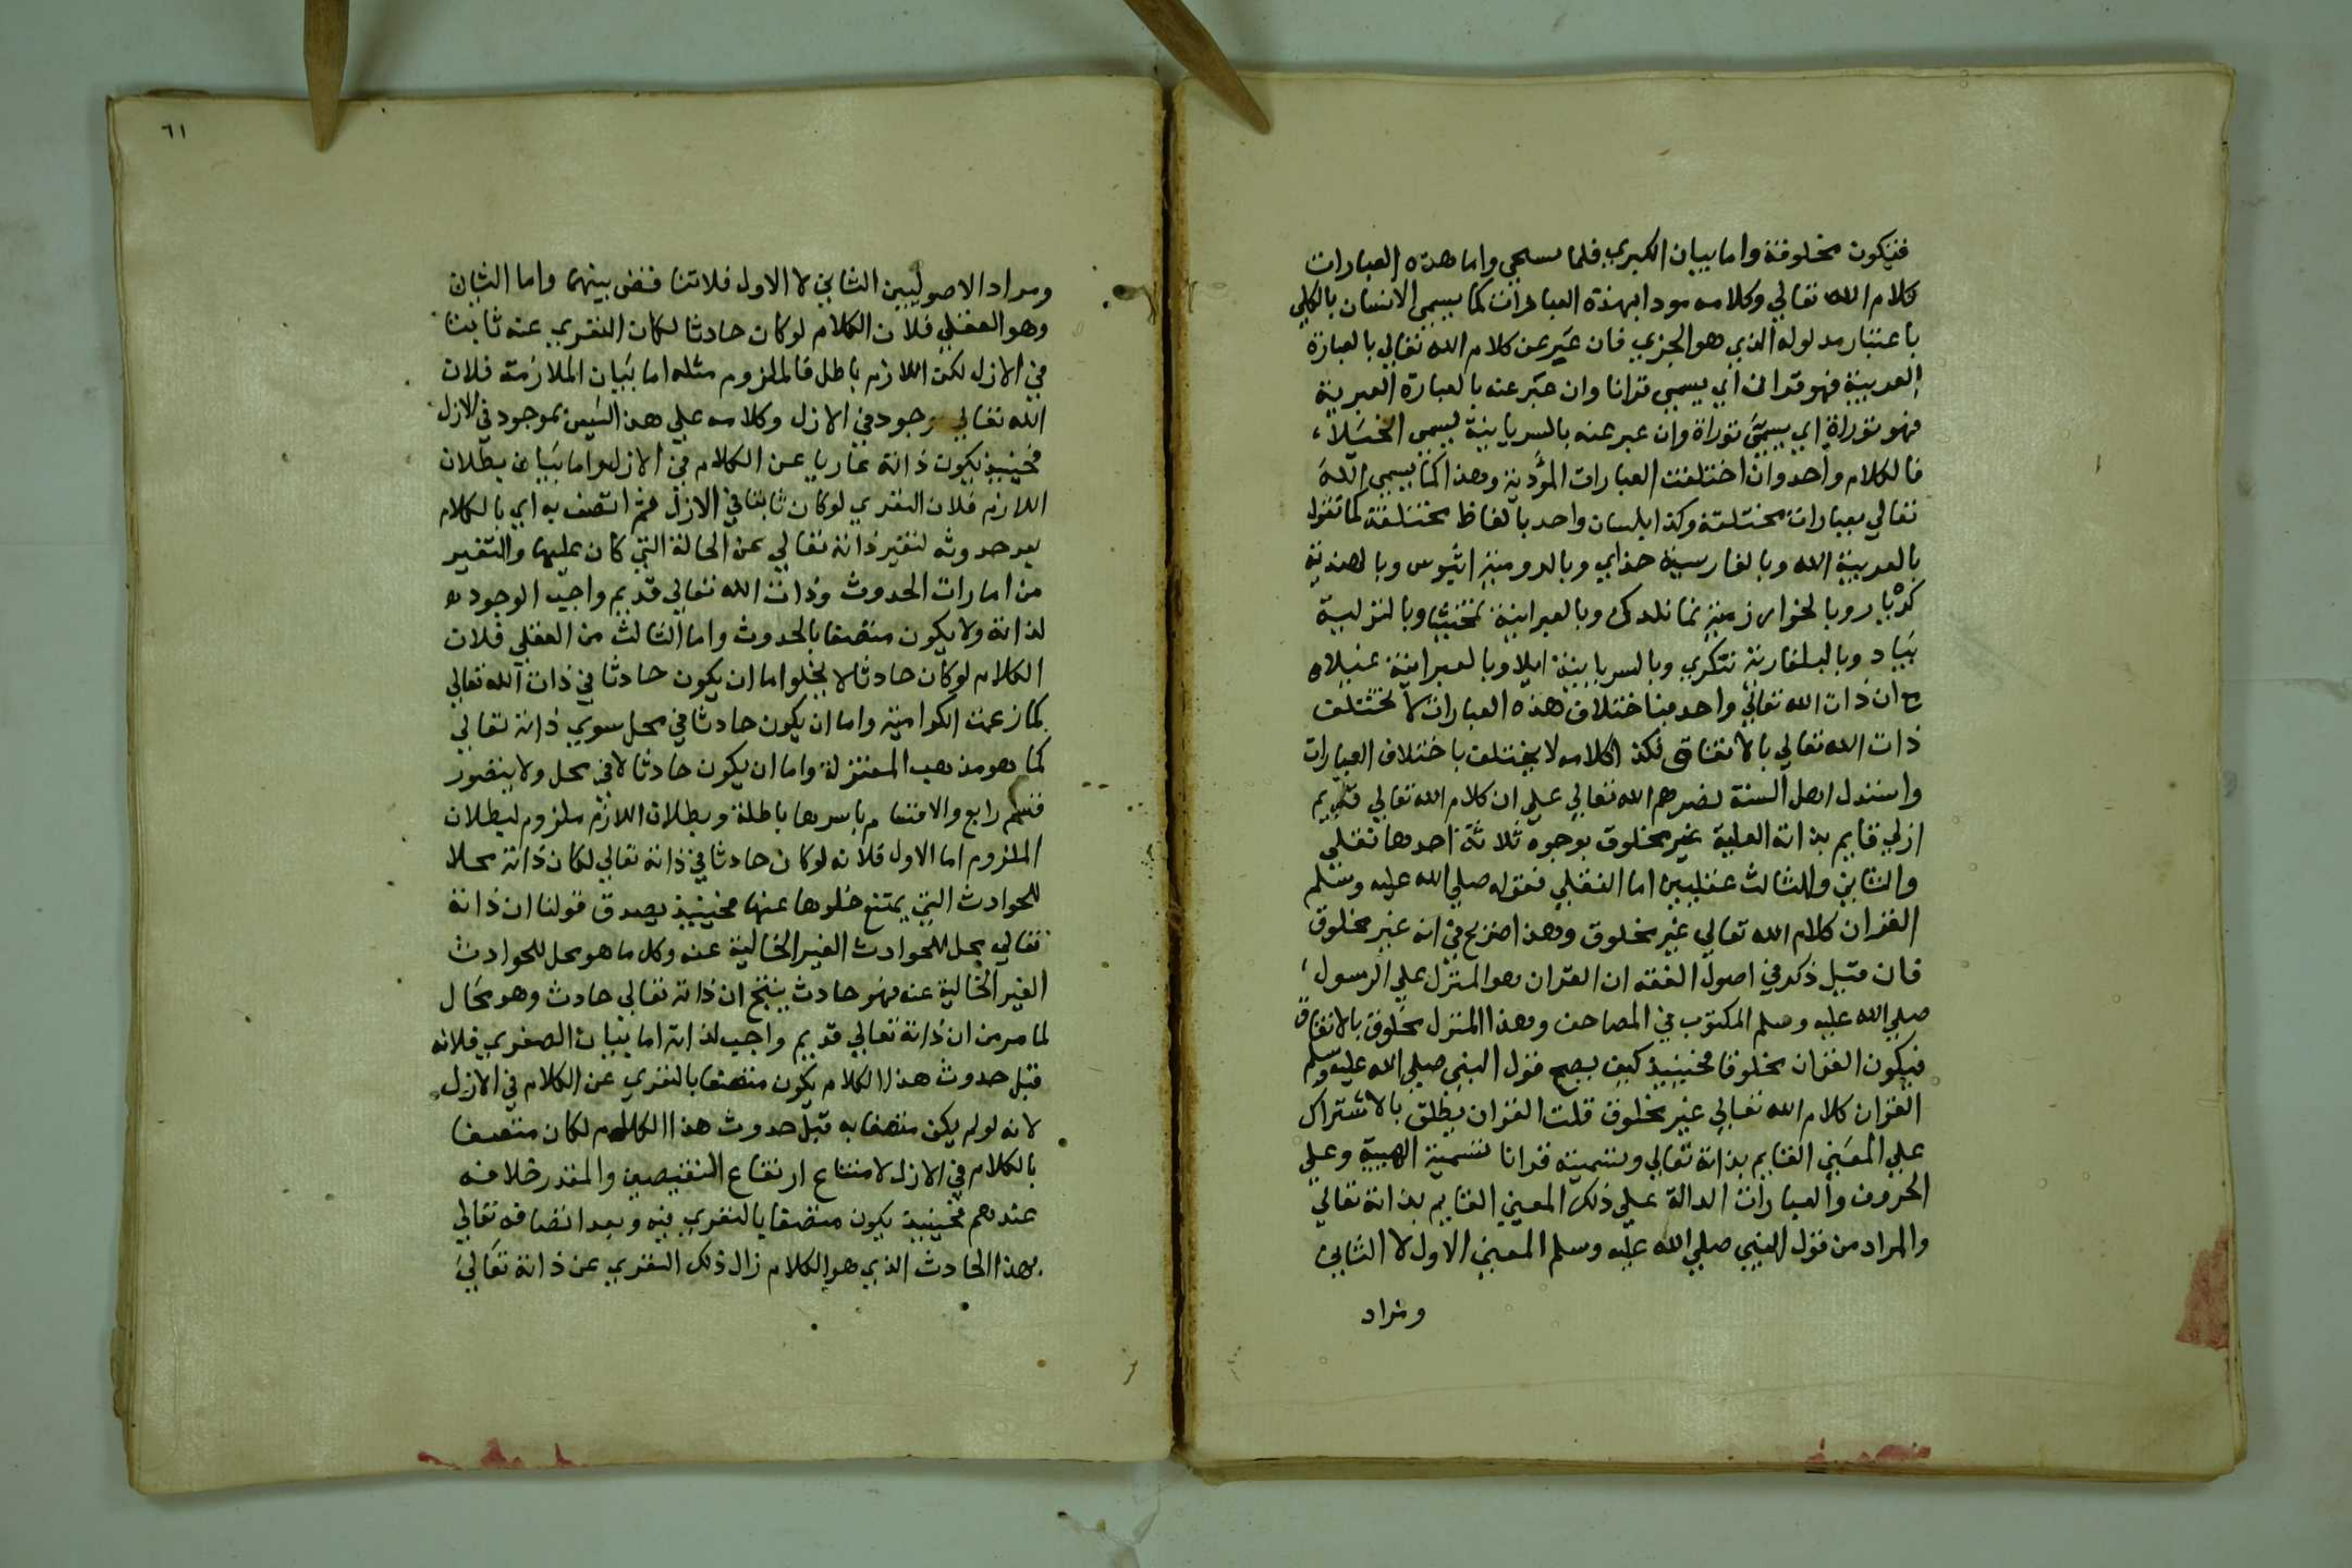 فيكون مخلوقة واما بيان الكبري فلما سيجي واما هذه العبارات
كلام الله تعالي وكلامه مودا بهذه العبارات كما يسمي الانسان بالكلي
باعتبار مدلوله الذي هو الجزي فان عبر عن كلام الله تعالي بالعبارة
العربية فهو قران اي يسمي قرانا وان عبر عنه بالعبارة العبرية
فهو توراة اي يسمي توراة وان عبر عنه بالسريانية يسمي انجيلا
فالكلام واحد وان اختلفت العبارات المؤدية وهذا كما يسمي الله
تعالي بعبارات مختلفة وكذا بلسان واحد بالفاظ مختلفة كما تقول
بالعربية الله وبالفارسية خداي وبالرومية اثيوس وبالهندية
كرْبار وبالخوارزمية وبالعبرانية وبالتركية
بيات وبالبلغارية تنكري وبالسريانية ايلا وبالعبرانية
مع ان ذات الله تعالي واحد فباختلاف هذه العبارات لا تختلف
ذات الله تعالي بالاتفاق فكذا كلامه لا يختلف باختلاف العبارات
واستدل اهل السنة نصرهم الله تعالي علي ان كلام الله تعالي قديم
ازلي قايم بذاته العلية غير مخلوق بوجوه ثلاثة احدها نقلي
والثاني والثالث عقليين اما النقلي فقوله صلي الله عليه وسلم
القران كلام الله تعالي غير مخلوق وهذا صريح في انه غير مخلوق
فان قيل ذكر في اصول الفقه ان القران هو المنزل علي الرسول
صلي الله عليه وسلم المكتوب في المصاحف وهذا المنزل مخلوق بالاتفاق
فيكون القران مخلوقا فحينيذ كيف يصح قول النبي صلي الله عليه وسلم
القران كلام الله تعالي غير مخلوق قلت القران يطلق بالاشتراك
علي المعني القايم بذاته تعالي وتسميته قرانا تسمية الهية وعلي
الحروف والعبارات الدالة علي ذلك المعني القايم بذاته تعالي
والمراد من قول النبي صلي الله عليه وسلم المعني الاول لا الثاني
ومراد
٦١
ومراد الاصوليين الثاني لا الاول فلا تناقض بينهما واما الثان
وهو العقلي فلان الكلام لو كان حادثا لكان التعري عنه ثابتا
في الازل لكن اللازم باطل فالملزوم مثله اما بيان الملازمة فلان
الله تعالي موجود في الازل وكلامه علي هذا ليس بموجود في الازل
فحينيذ يكون ذاته عاريا عن الكلام في الازل واما بيان بطلان
اللازم فلان التعري لو كان ثابتا في الازل ثم اتصف به اي بالكلام
بعد حدوثه لتغير ذاته تعالي عن الحالة التي كان عليها والتغير
من امارات الحدوث وذات الله تعالي قديم واجب الوجود
لذاته ولا يكون متصفا بالحدوث واما الثالث من العقلي فلان
الكلام لو كان حادثا لا يخلوا اما ان يكون حادثا في ذات الله تعالي
كما زعمت الكرامية واما ان يكون حادثا في محل سوي ذاته تعالي
كما هو مذهب المعتزلة واما ان يكون حادثا لا في محل ولا يتصور
قسم رابع والاقسام باسرها باطلة وبطلان اللازم ملزوم لبطلان
الملزوم اما الاول فلانه لو كان حادثا في ذاته تعالي لكان ذاته محلا
للحوادث التي يمتنع خلوها عنها فحينيذ يصدق قولنا ان ذاته
تعالي محل للحوادث الغير الخالية عنه وكل ما هو محل للحوادث
الغير الخالية عنه فهو حادث ينتج ان ذاته تعالي حادث وهو محال
لما مر من ان ذاته تعالي قديم واجب لذاته اما بيان الصغري فلانه
قبل حدوث هذا الكلام يكون متصفا بالتعري عن الكلام في الازل
لانه لو لم يكن متصفا به قبل حدوث هذا الكلام لكان متصفا
بالكلام في الازل لامتناع ارتفاع النقيضين والمقدر خلافه
عندهم فحينيذ يكون متصفا بالتعري فيه وبعد اتصافه تعالي
بهذا الحادث الذي هو الكلام زال ذلك التعري عن ذاته تعالي